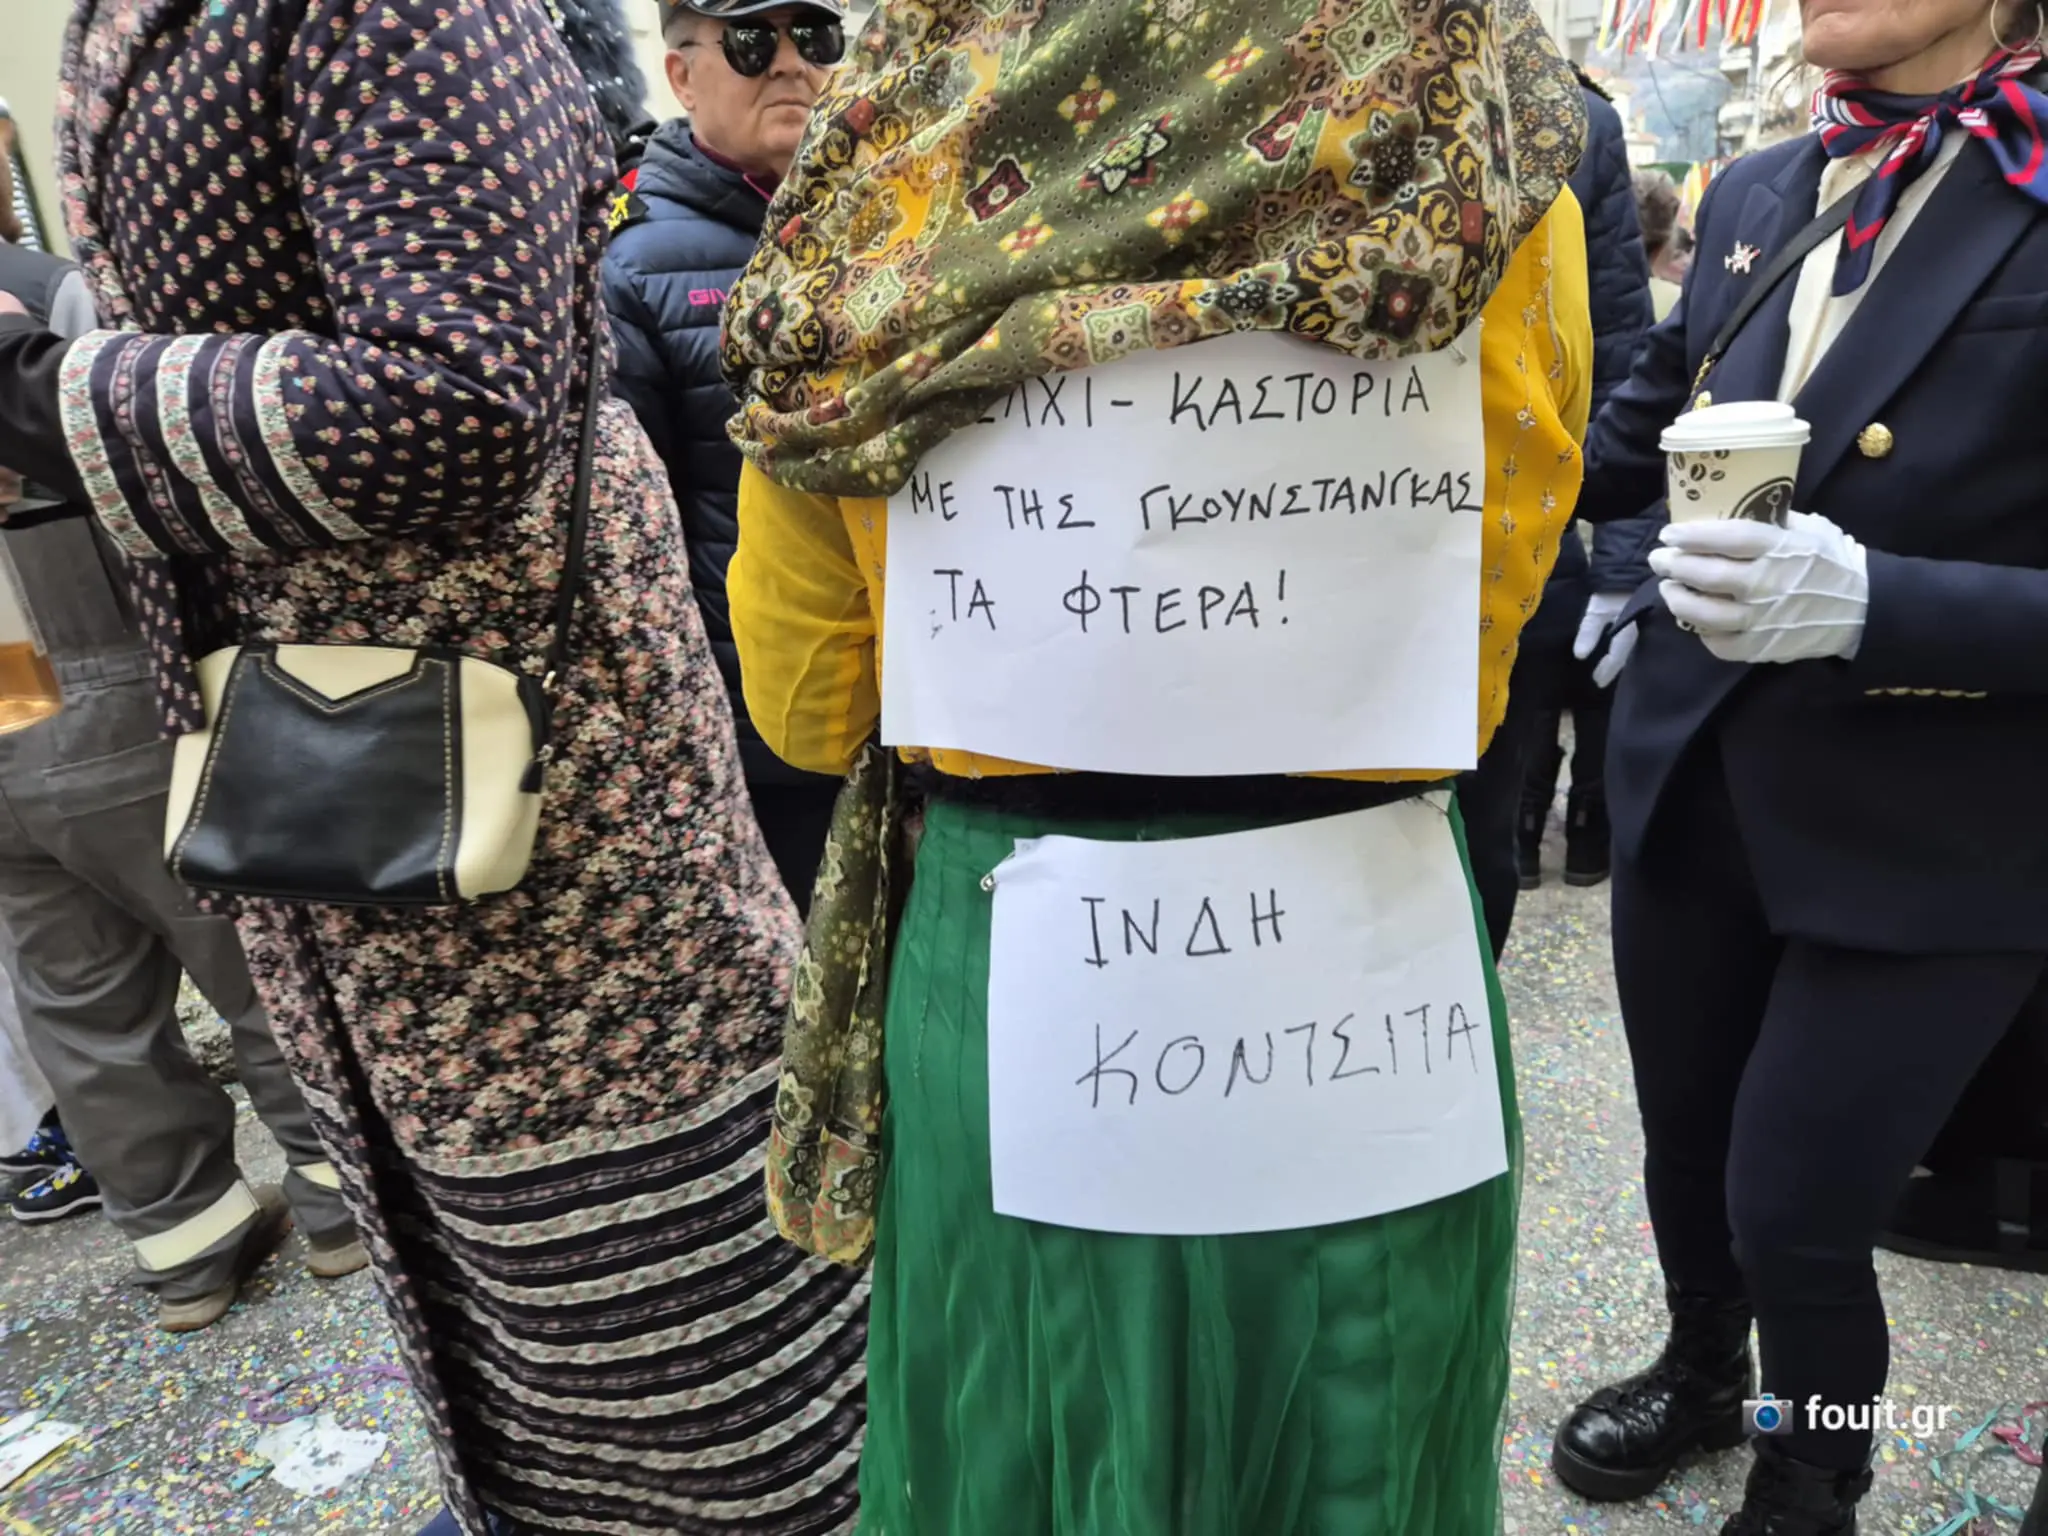 ΕΛΧΙ - ΚΑΣΤΟΡΙΑ
ΜΕ ΤΗΣ ΓΚΟΥΝΣΤΑΝΓΚΑΣ
ΤΑ ΦΤΕΡΑ!
ΙΝΔΗ
ΚΟΝΤΣΙΤΑ
GIV
fouit.gr